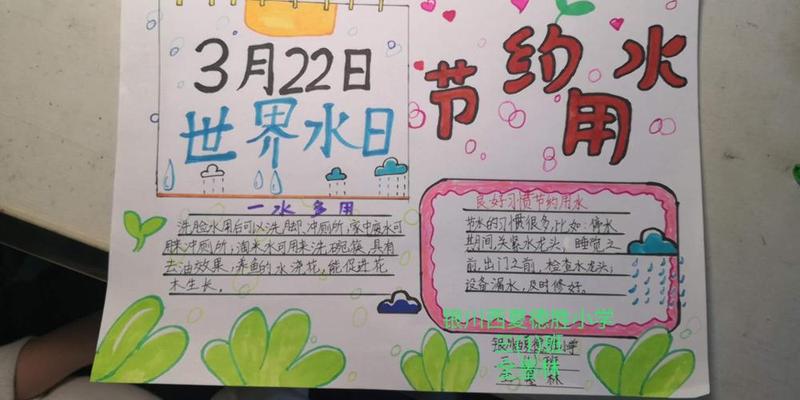 3月22日
世界水日
节约用水
一水多用
洗脸水用后可以洗脚、冲厕所,家中废水可
用来冲厕所;淘米水可用来洗碗筷,具有
去油效果,养鱼的水浇花,能促进花
木生长。
良好习惯节约用水
节水的习惯很多,比如:停水
期间关紧水龙头,睡觉之
前,出门之前,检查水龙头;
设备漏水,及时修好。
银川西夏德胜小学